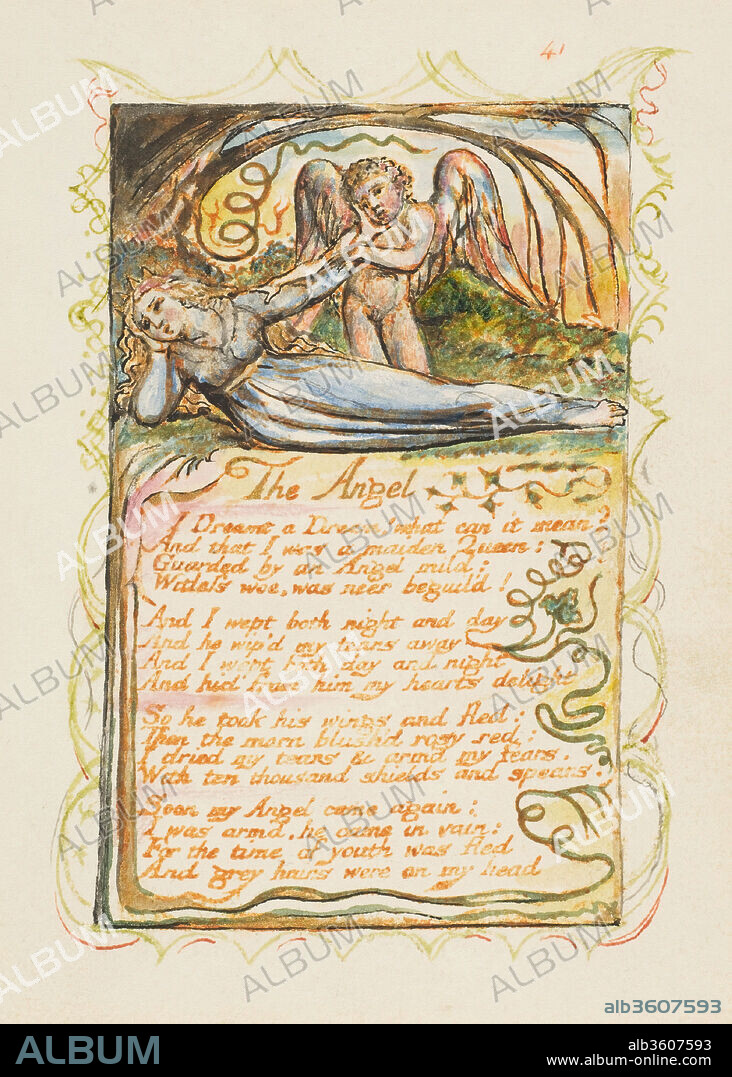 41
The Angel
I Dreamt a Dream! what can it mean?
And that I was a maiden Queen:
Guarded by an Angel mild:
Witless woe, was neer beguil'd!
And I wept both night and day
And he wip'd my tears away
And I wept both day and night
And hid from him my hearts delight
So he took his wings and fled:
Then the morn blush'd rosy red:
I dried my tears & armd my fears,
With ten thousand shields and spears.
Soon my Angel came again:
I was arm'd, he came in vain:
For the time of youth was fled
And grey hairs were on my head
alb3607593
ALBUM
alb3607593
www.album-online.com